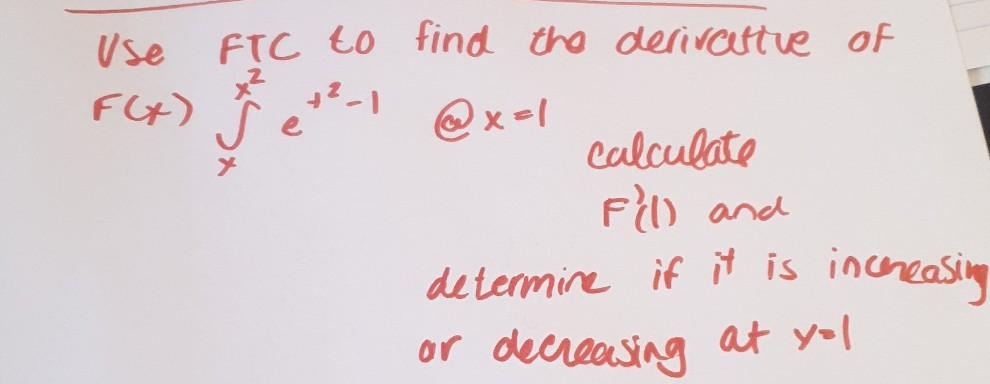 Use FTC to find the derivative of
F(x) ∫ₓˣ² e^(t²-1) @ x=1
calculate
F'(1) and
determine if it is increasing
or decreasing at x=1